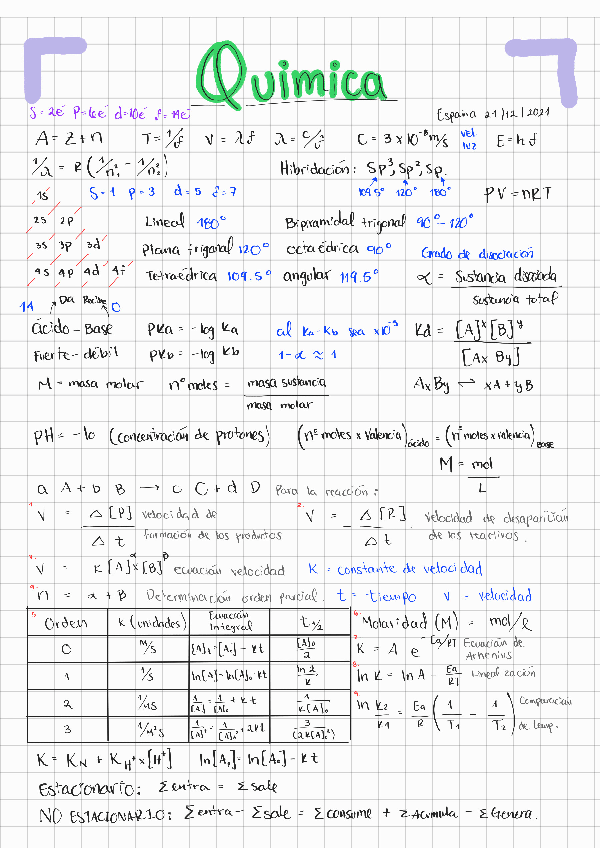 Química
S=2e⁻ p=6e⁻ d=10e⁻ f=14e⁻
España 21/12/2021
A = Z + n T = 1/f V = λf λ = c/ν C = 3 x 10⁻⁸ m/s vel. luz E = h f
1/λ = R (1/n₁² - 1/n₂²) Hibridación: Sp³, Sp², Sp.
1s S=1 p=3 d=5 f=7 109.5° 120° 180° PV = nRT
2s 2p Lineal 180° Bipiramidal trigonal 90°-120°
3s 3p 3d Plana trigonal 120° octaédrica 90° Grado de disociación
4s 4p 4d 4f Tetraédrica 109.5° angular 119.5° α = Sustancia disociada / sustancia total
14 Da Recibe 0
ácido - Base PKa = -log Ka al Ka-Kb sea x10⁻⁵ Kd = [A]ˣ[B]ʸ / [Ax By]
Fuerte - débil PKb = -log Kb 1-α ≈ 1
M - masa molar nº moles = masa sustancia / masa molar AxBy ⇌ xA + yB
PH = -lo (concentración de protones) (nº moles x valencia)ácido = (nº moles x valencia)BASE
M = mol / L
a A + b B → c C + d D Para la reacción:
1. V = Δ[P] / Δt velocidad de formación de los productos 2. V = - Δ[R] / Δt velocidad de desaparición de los reactivos.
3. V = K[A]^α x [B]^β ecuación velocidad K = constante de velocidad
4. n = α + B Determinación orden parcial. t = tiempo v - velocidad
5. Orden K (unidades) Ecuación Integral t ½
0 M/s [A]t = [A₀] - Kt [A]₀/2
1 1/s ln[A] = ln[A]₀ - Kt ln 2/K
2 1/MS 1/[A] = 1/[A]₀ + Kt 1/K[A]₀
3 1/M²s 1/[A]² = 1/[A]₀² + 2Kt 3/(2K[A]₀²)
6. Molaridad (M) = mol/l
7. K = A e^-Ea/RT Ecuación de Arhenius
8. ln K = ln A - Ea/RT Linealización
9. ln K2/K1 = Ea/R (1/T₁ - 1/T₂) Comparación de temp.
K = KN + KH⁺ x [H⁺] ln[At] = ln[A₀] - Kt
Estacionario: Σ entra = Σ sale
NO ESTACIONARIO: Σ entra - Σ sale = Σ consume + Σ Acumula - Σ Genera.